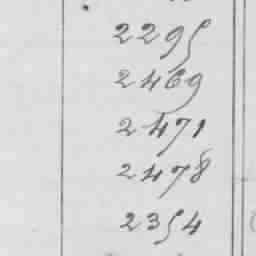 2295
2469
2471
2478
2354